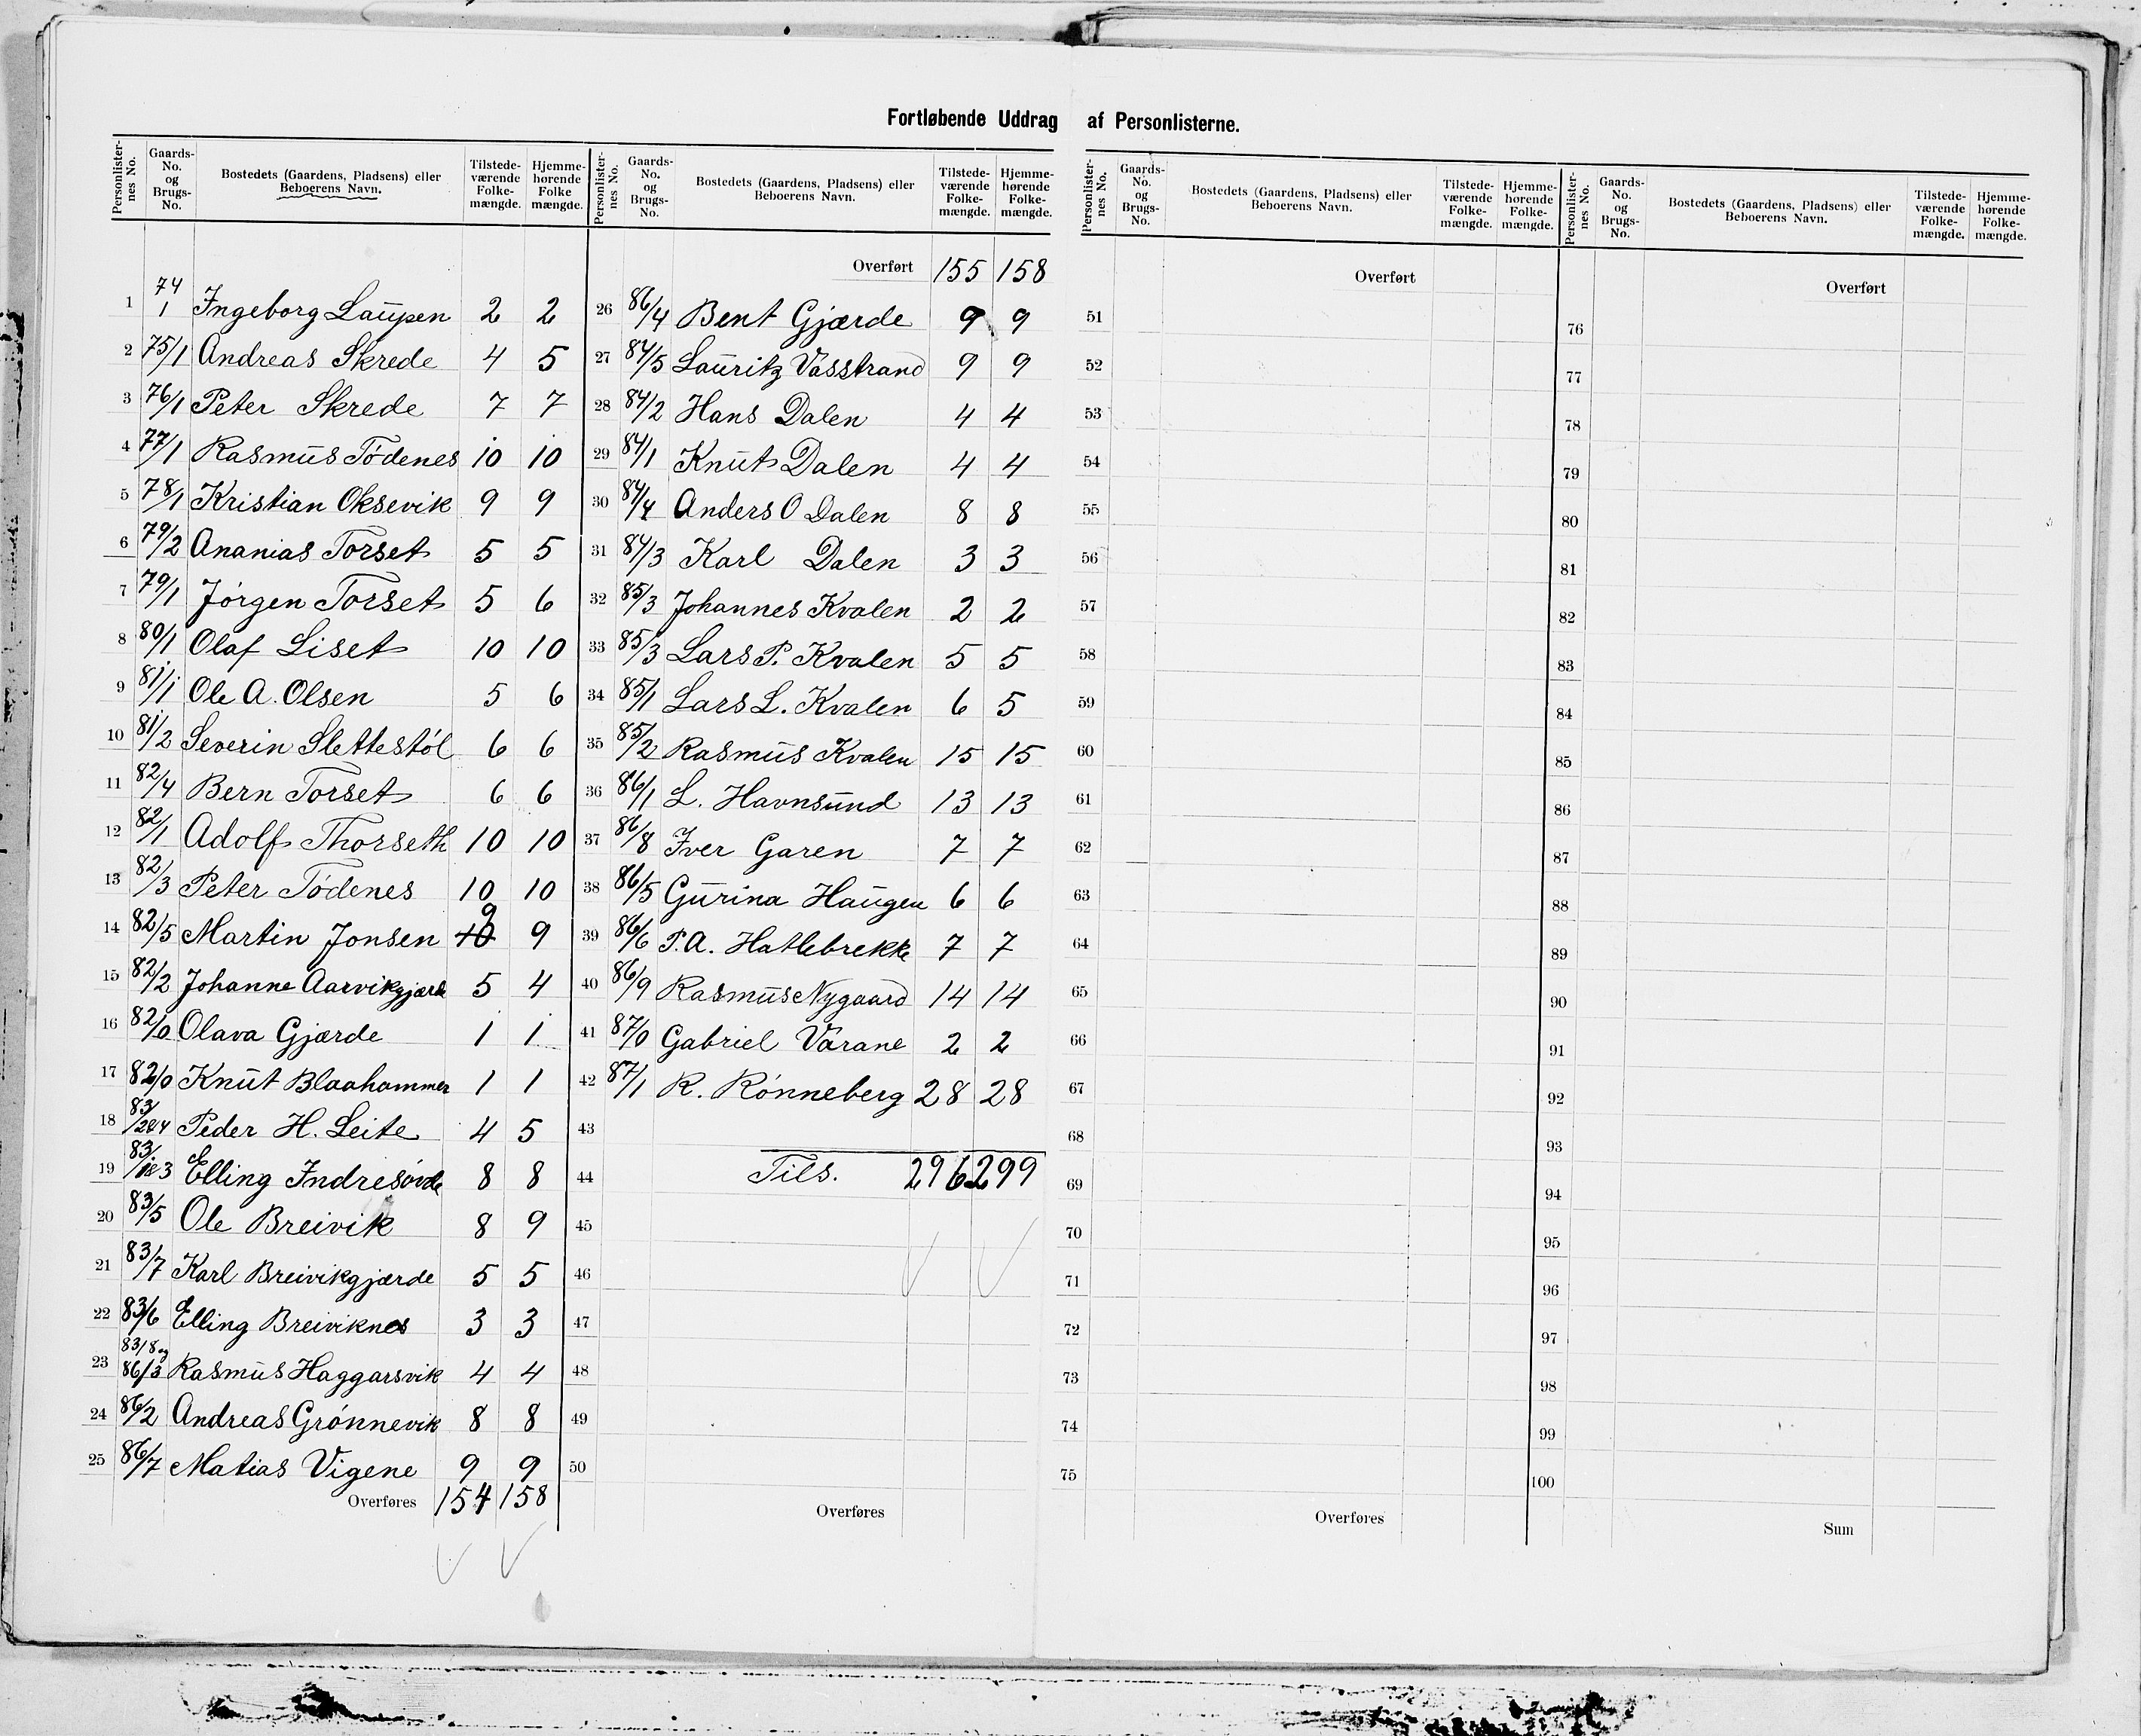 Fortløbende Uddrag af Personlisterne.
Personlister-nes No. | Gaards-No. og Brugs-No. | Bostedets (Gaardens, Pladsens) eller Beboerens Navn. | Tilstede-værende Folke-mængde. | Hjemme-hørende Folke mængde.
1 74/1 Ingeborg Laupen 2 2
2 75/1 Andreas Skrede 4 5
3 76/1 Peter Skrede 7 7
4 77/1 Rasmus Tödenes 10 10
5 78/1 Kristian Oksevik 9 9
6 79/2 Ananias Torset 5 5
7 79/1 Jörgen Torset 5 6
8 80/1 Olaf Liset 10 10
9 81/1 Ole A. Olsen 5 6
10 81/2 Severin Slettestöl 6 6
11 82/4 Bern Torset 6 6
12 82/1 Adolf Thorseth 10 10
13 82/3 Peter Tódenes 10 10
14 82/5 Martin Jonsen 9 9
15 82/2 Johanne Aarvikgjærde 5 4
16 82/0 Olava Gjærde 1 1
17 82/0 Knut Blaahammer 1 1
18 83/2&4 Peder H. Leite 4 5
19 83/1&3 Elling Indresövde 8 8
20 83/5 Ole Breivik 8 9
21 83/7 Karl Breivikgjærde 5 5
22 83/6 Elling Breiviknes 3 3
23 83/8 og 86/3 Rasmus Haggarsvik 4 4
24 86/2 Andreas Grónnevik 8 8
25 86/7 Matias Vigene 9 9
Overføres 154 158
Personlister-nes No. | Gaards-No. og Brugs-No. | Bostedets (Gaardens, Pladsens) eller Beboerens Navn. | Tilstede-værende Folke-mængde. | Hjemme-hørende Folke-mængde.
Overført 155 158
26 86/4 Bent Gjærde 9 9
27 84/5 Lauritz Vasstrand 9 9
28 84/2 Hans Dalen 4 4
29 84/1 Knut Dalen 4 4
30 84/4 Anders O Dalen 8 8
31 84/3 Karl Dalen 3 3
32 85/3 Johannes Kvalen 2 2
33 85/3 Lars P. Kvalen 5 5
34 85/1 Lars L. Kvalen 6 5
35 85/2 Rasmus Kvalen 15 15
36 86/1 L. Havnsund 13 13
37 86/8 Iver Garen 7 7
38 86/5 Gurina Haugen 6 6
39 86/6 P.A. Hatlebrekke 7 7
40 86/9 Rasmus Nygaard 14 14
41 87/0 Gabriel Varane 2 2
42 87/1 R. Rónneberg 28 28
43
44 Tils. 296 299
45
46
47
48
49
50
Overføres
Personlister-nes No. | Gaards-No. og Brugs-No. | Bostedets (Gaardens, Pladsens) eller Beboerens Navn. | Tilstede-værende Folke-mængde. | Hjemme-hørende Folke-mængde.
Overført
51
52
53
54
55
56
57
58
59
60
61
62
63
64
65
66
67
68
69
70
71
72
73
74
75
Overføres
Personlister-nes No. | Gaards-No. og Brugs-No. | Bostedets (Gaardens, Pladsens) eller Beboerens Navn. | Tilstede-værende Folke-mængde. | Hjemme-hørende Folke-mængde.
Overført
76
77
78
79
80
81
82
83
84
85
86
87
88
89
90
91
92
93
94
95
96
97
98
99
100
Sum